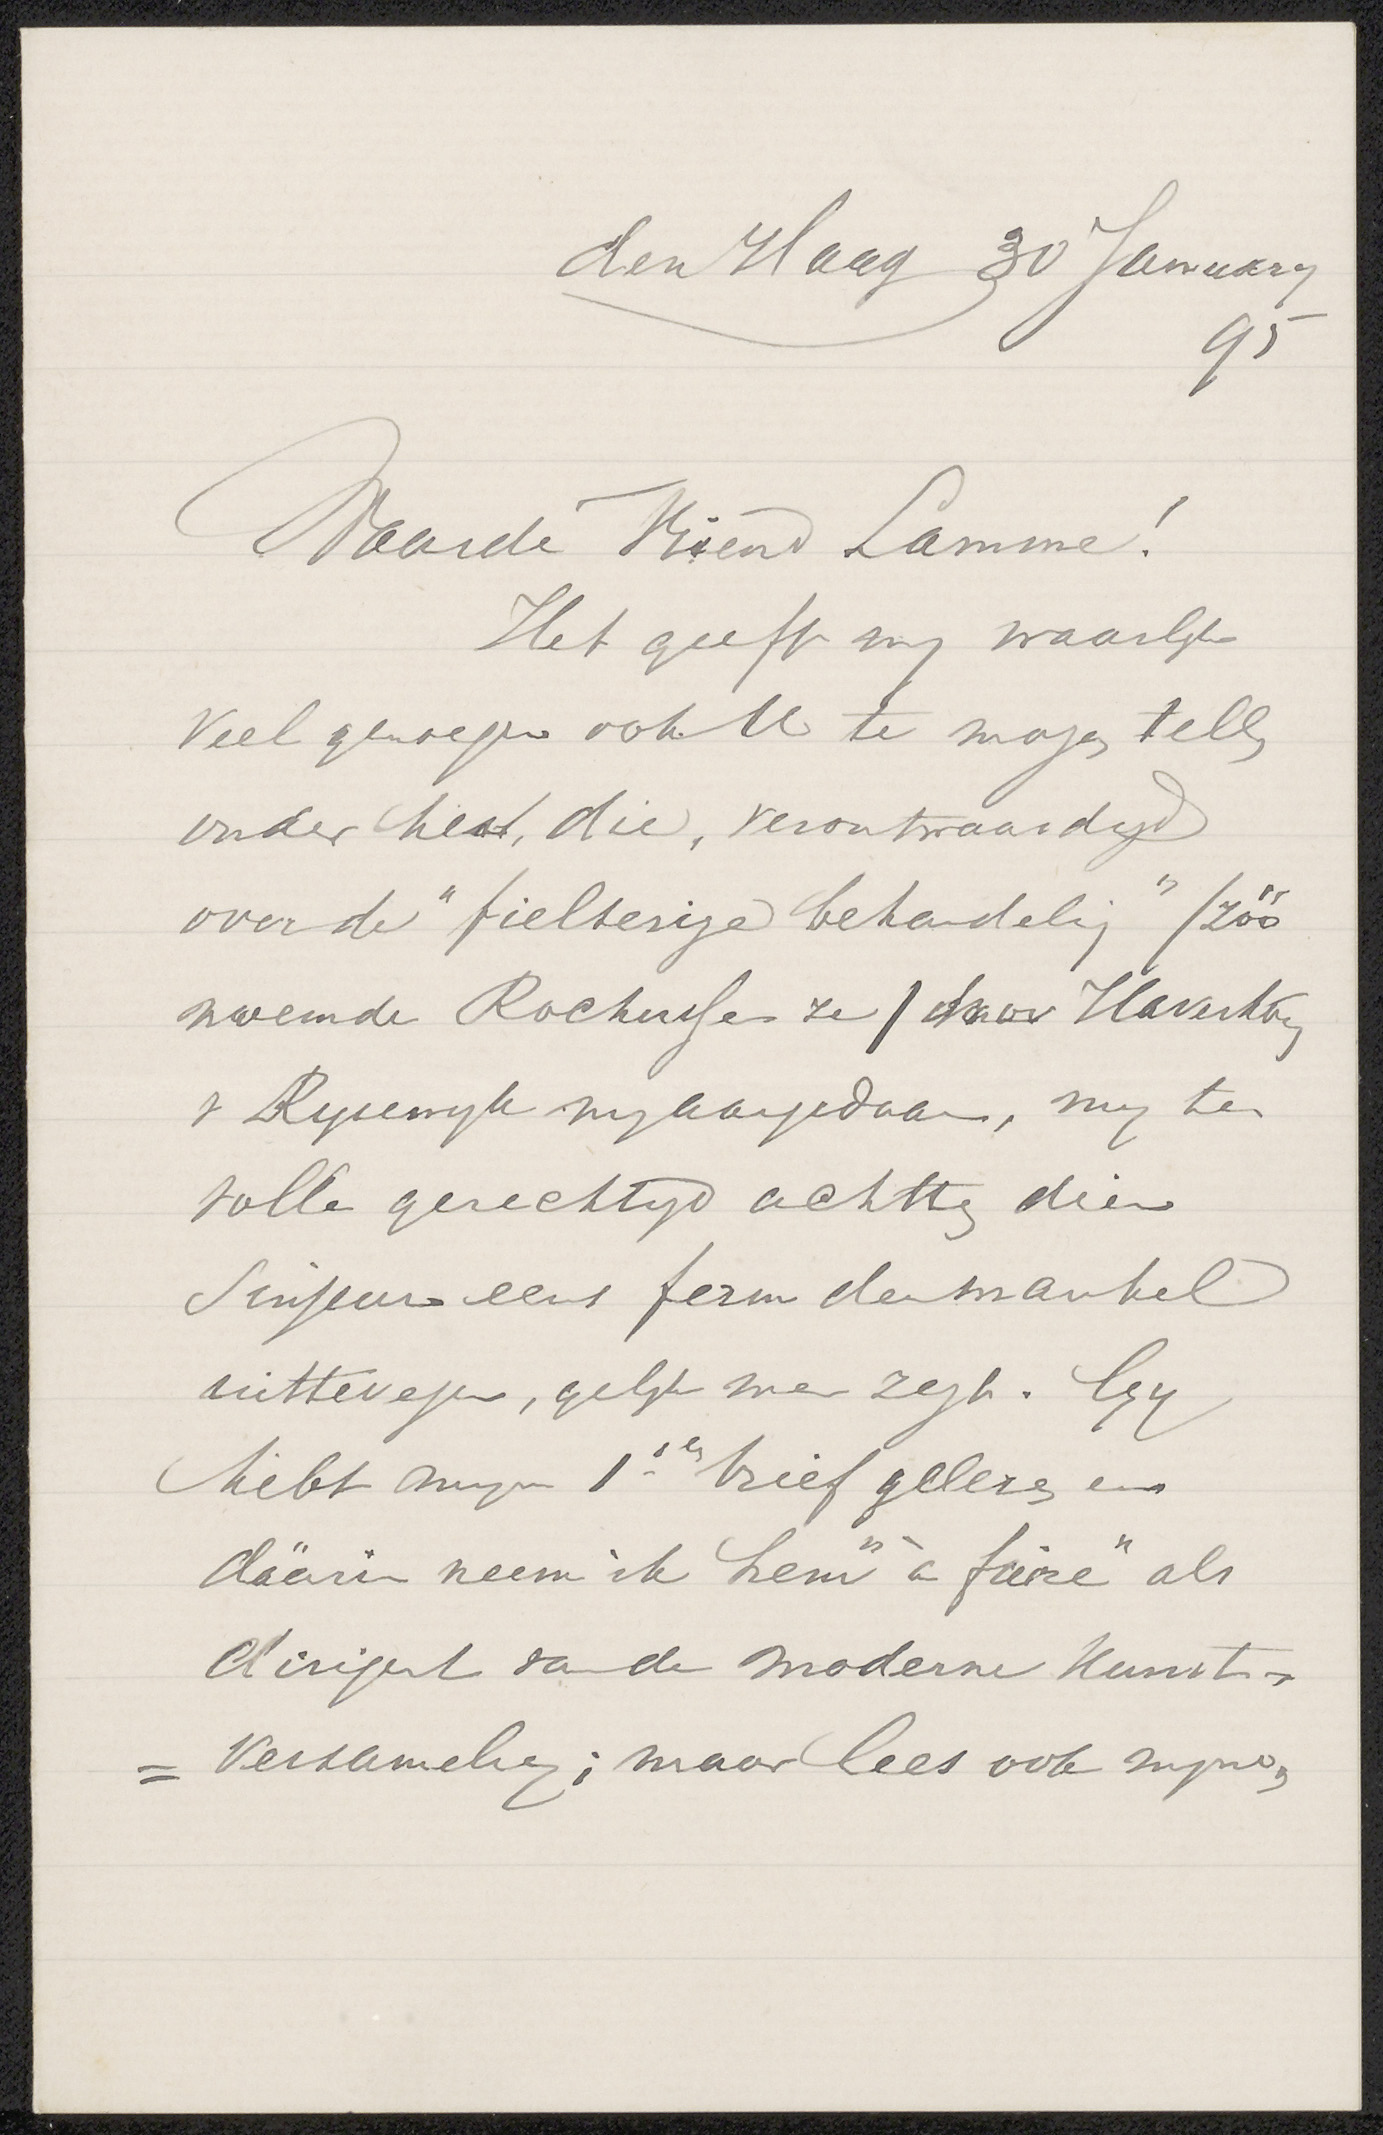 den Haag 30 January
95
Waarde Vriend Lamme!
Het geeft my waarlyk
veel genoegen ook U te mogen tellen
onder hen, die, verontwaardigd
over de "fielterige behandeling" /zóó
noemde Rochussen ze / door Haverkorn
v Rysewyk my aangedaan, my ten
volle gerechtigd achtten dien
Sinjeur eens ferm den mantel
uittevegen, gelyk men zegt. Gy
hebt myn 1sten brief gelezen en
däärin neem ik hem "à faire" als
dirigent van de moderne Kunst=
=verzameling; maar lees ook mynen